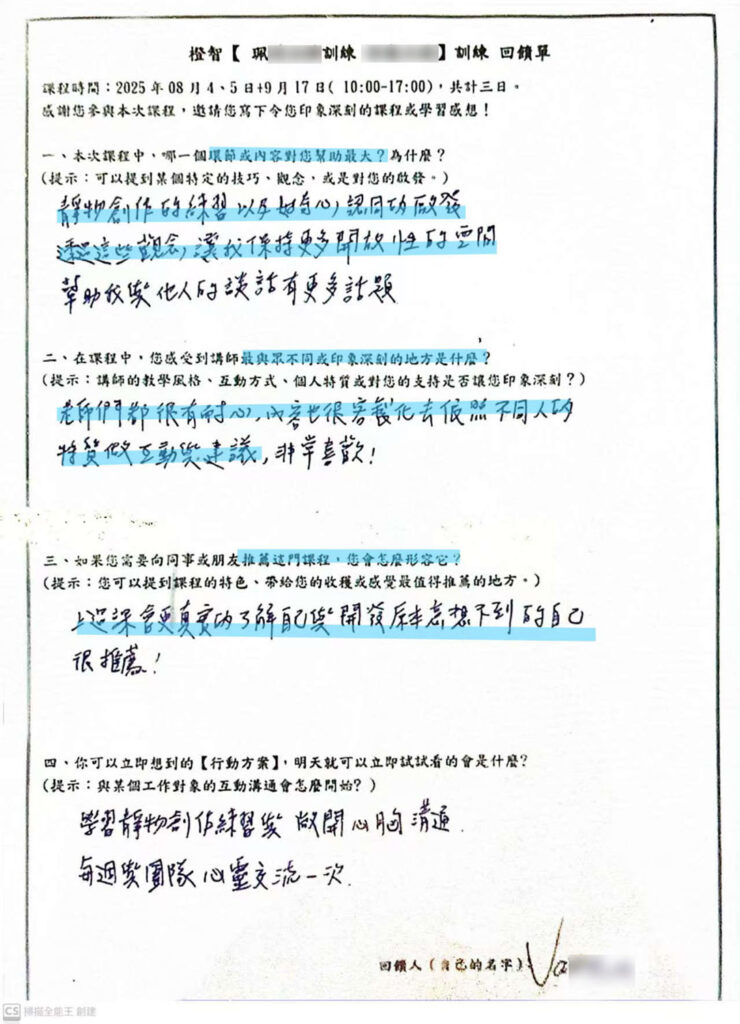 橙智【 珮 訓練 】訓練 回饋單
課程時間：2025年08月4、5日+9月17日( 10:00-17:00)，共計三日。
感謝您參與本次課程，邀請您寫下令您印象深刻的課程或學習感想！
一、本次課程中，哪一個環節或內容對您幫助最大？為什麼？
(提示：可以提到某個特定的技巧、觀念，或是對您的啟發。)
靜物創作的練習以及好奇心，認同功啟發
透過這些觀念，讓我保持更多開放性的空間
幫助我與他人的談話有更多話題
二、在課程中，您感受到講師最與眾不同或印象深刻的地方是什麼？
(提示：講師的教學風格、互動方式、個人特質或對您的支持是否讓您印象深刻？)
老師們都很有耐心，內容也很客製化去依照不同人的
特質做互動與建議，非常喜歡！
三、如果您需要向同事或朋友推薦這門課程，您會怎麼形容它？
(提示：您可以提到課程的特色、帶給您的收穫或感覺最值得推薦的地方。)
上過課會更真實的了解自己與開發意想不到的自己
很推薦！
四、你可以立即想到的【行動方案】，明天就可以立即試試看的會是什麼?
(提示：與某個工作對象的互動溝通會怎麼開始? )
學習靜物創作練習與敞開心胸溝通.
每週與團隊心靈交流一次.
回饋人（自己的名字）: Va
CS 掃描全能王 創建